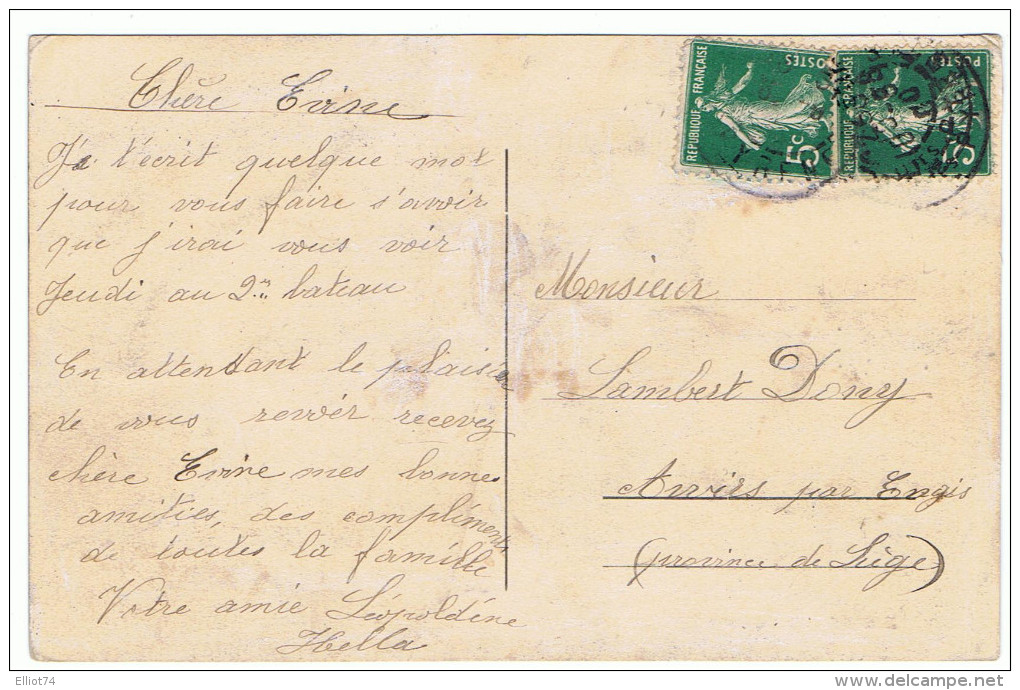 Chère Erine
Je t'écrit quelque mot
pour vous faire s'avoir
que j'irai vous voir
Jeudi au 2me bateau
En attendant le plaisir
de vous revoir recevez
chère Erine mes bonnes
amitiés, des compliments
de toutes la famille
Votre amie Léopoldine
Hella
REPUBLIQUE FRANÇAISE
POSTES
5c
REPUBLIQUE FRANÇAISE
POSTES
5c
Monsieur
Lambert Dony
Awirs par Engis
(province de Liège)
Elliot74
delcampe.net